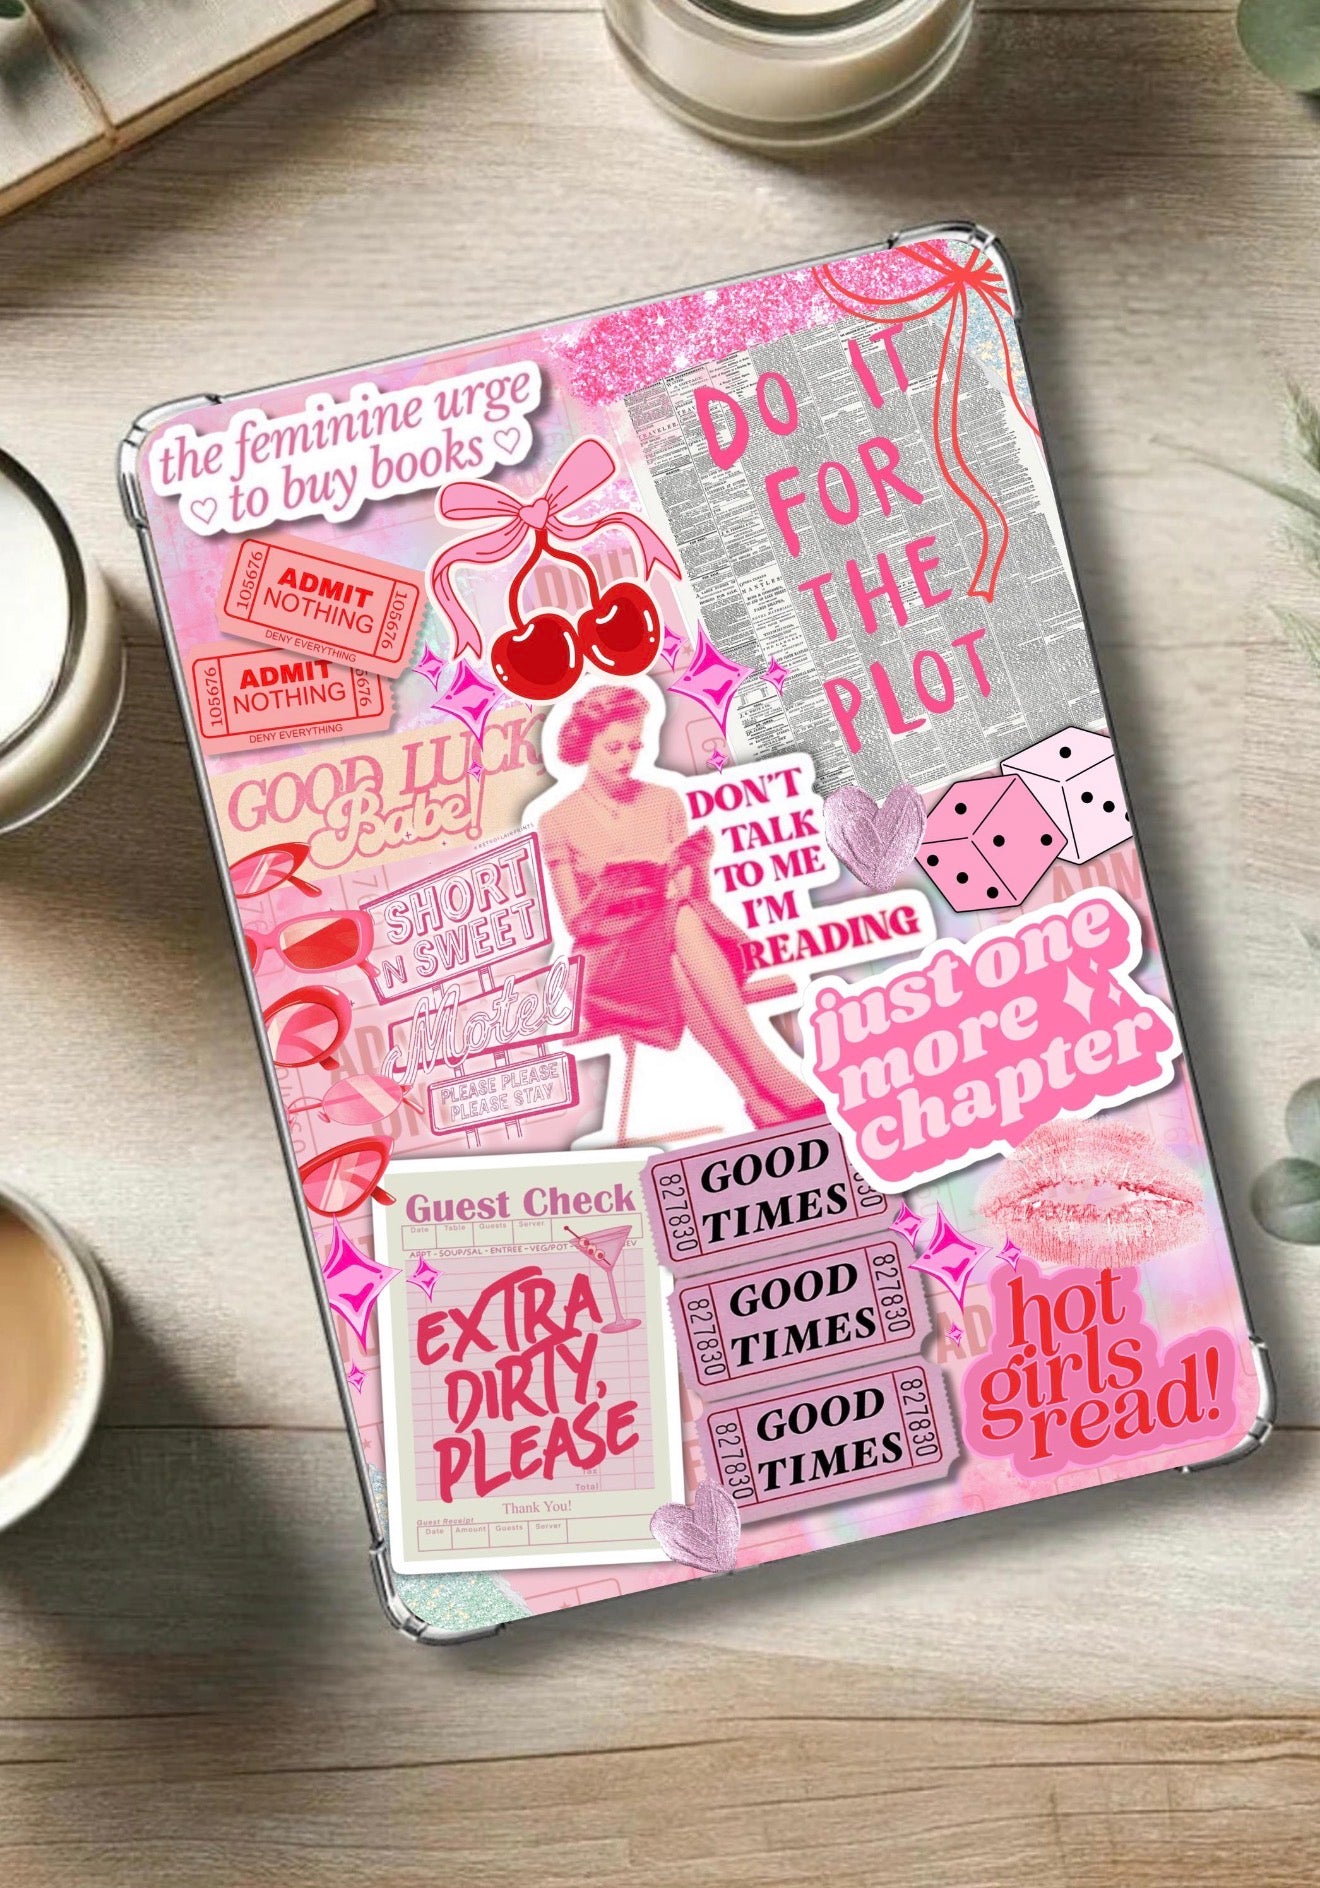 the feminine urge
♡ to buy books ♡
DO IT
FOR
THE
PLOT
105676
ADMIT
NOTHING
105676
DENY EVERYTHING
105676
ADMIT
NOTHING
DENY EVERYTHING
GOOD LUCK
Babe!
SHORT
N SWEET
Motel
PLEASE PLEASE
PLEASE STAY
DON'T
TALK
TO ME
I'M
READING
just one
more
chapter
Guest Check
Date Table Guests Server
APPT - SOUP/SAL - ENTREE - VEG/POT -
EXTRA
DIRTY,
PLEASE
Tax
Total
Thank You!
Guest Receipt
Date Amount Guests Server
827830
GOOD
TIMES
827830
GOOD
TIMES
827830
827830
GOOD
TIMES
827830
hot
girls
read!